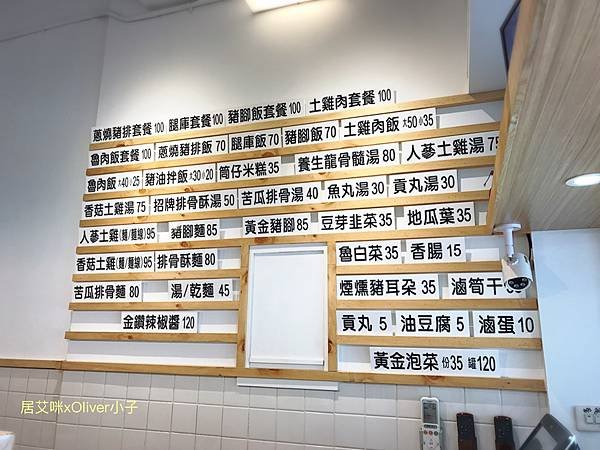 蔥燒豬排套餐100 腿庫套餐100 豬腳飯套餐100 土雞肉套餐100
魯肉飯套餐100 蔥燒豬排飯70 腿庫飯70 豬腳飯70 土雞肉飯大50小35
魯肉飯大40小25 豬油拌飯大30小20 筒仔米糕35 養生龍骨髓湯80 人蔘土雞湯75
香菇土雞湯75 招牌排骨酥湯50 苦瓜排骨湯40 魚丸湯30 貢丸湯30
人蔘土雞(麵/麵線)95 豬腳麵85 黃金豬腳85 豆芽韭菜35 地瓜葉35
香菇土雞(麵/麵線)95 排骨酥麵80 魯白菜35 香腸15
苦瓜排骨麵80 湯/乾麵45 煙燻豬耳朶35 滷筍干
金鑽辣椒醬120 貢丸5 油豆腐5 滷蛋10
黃金泡菜 份35 罐120
居艾咪xOliver小子